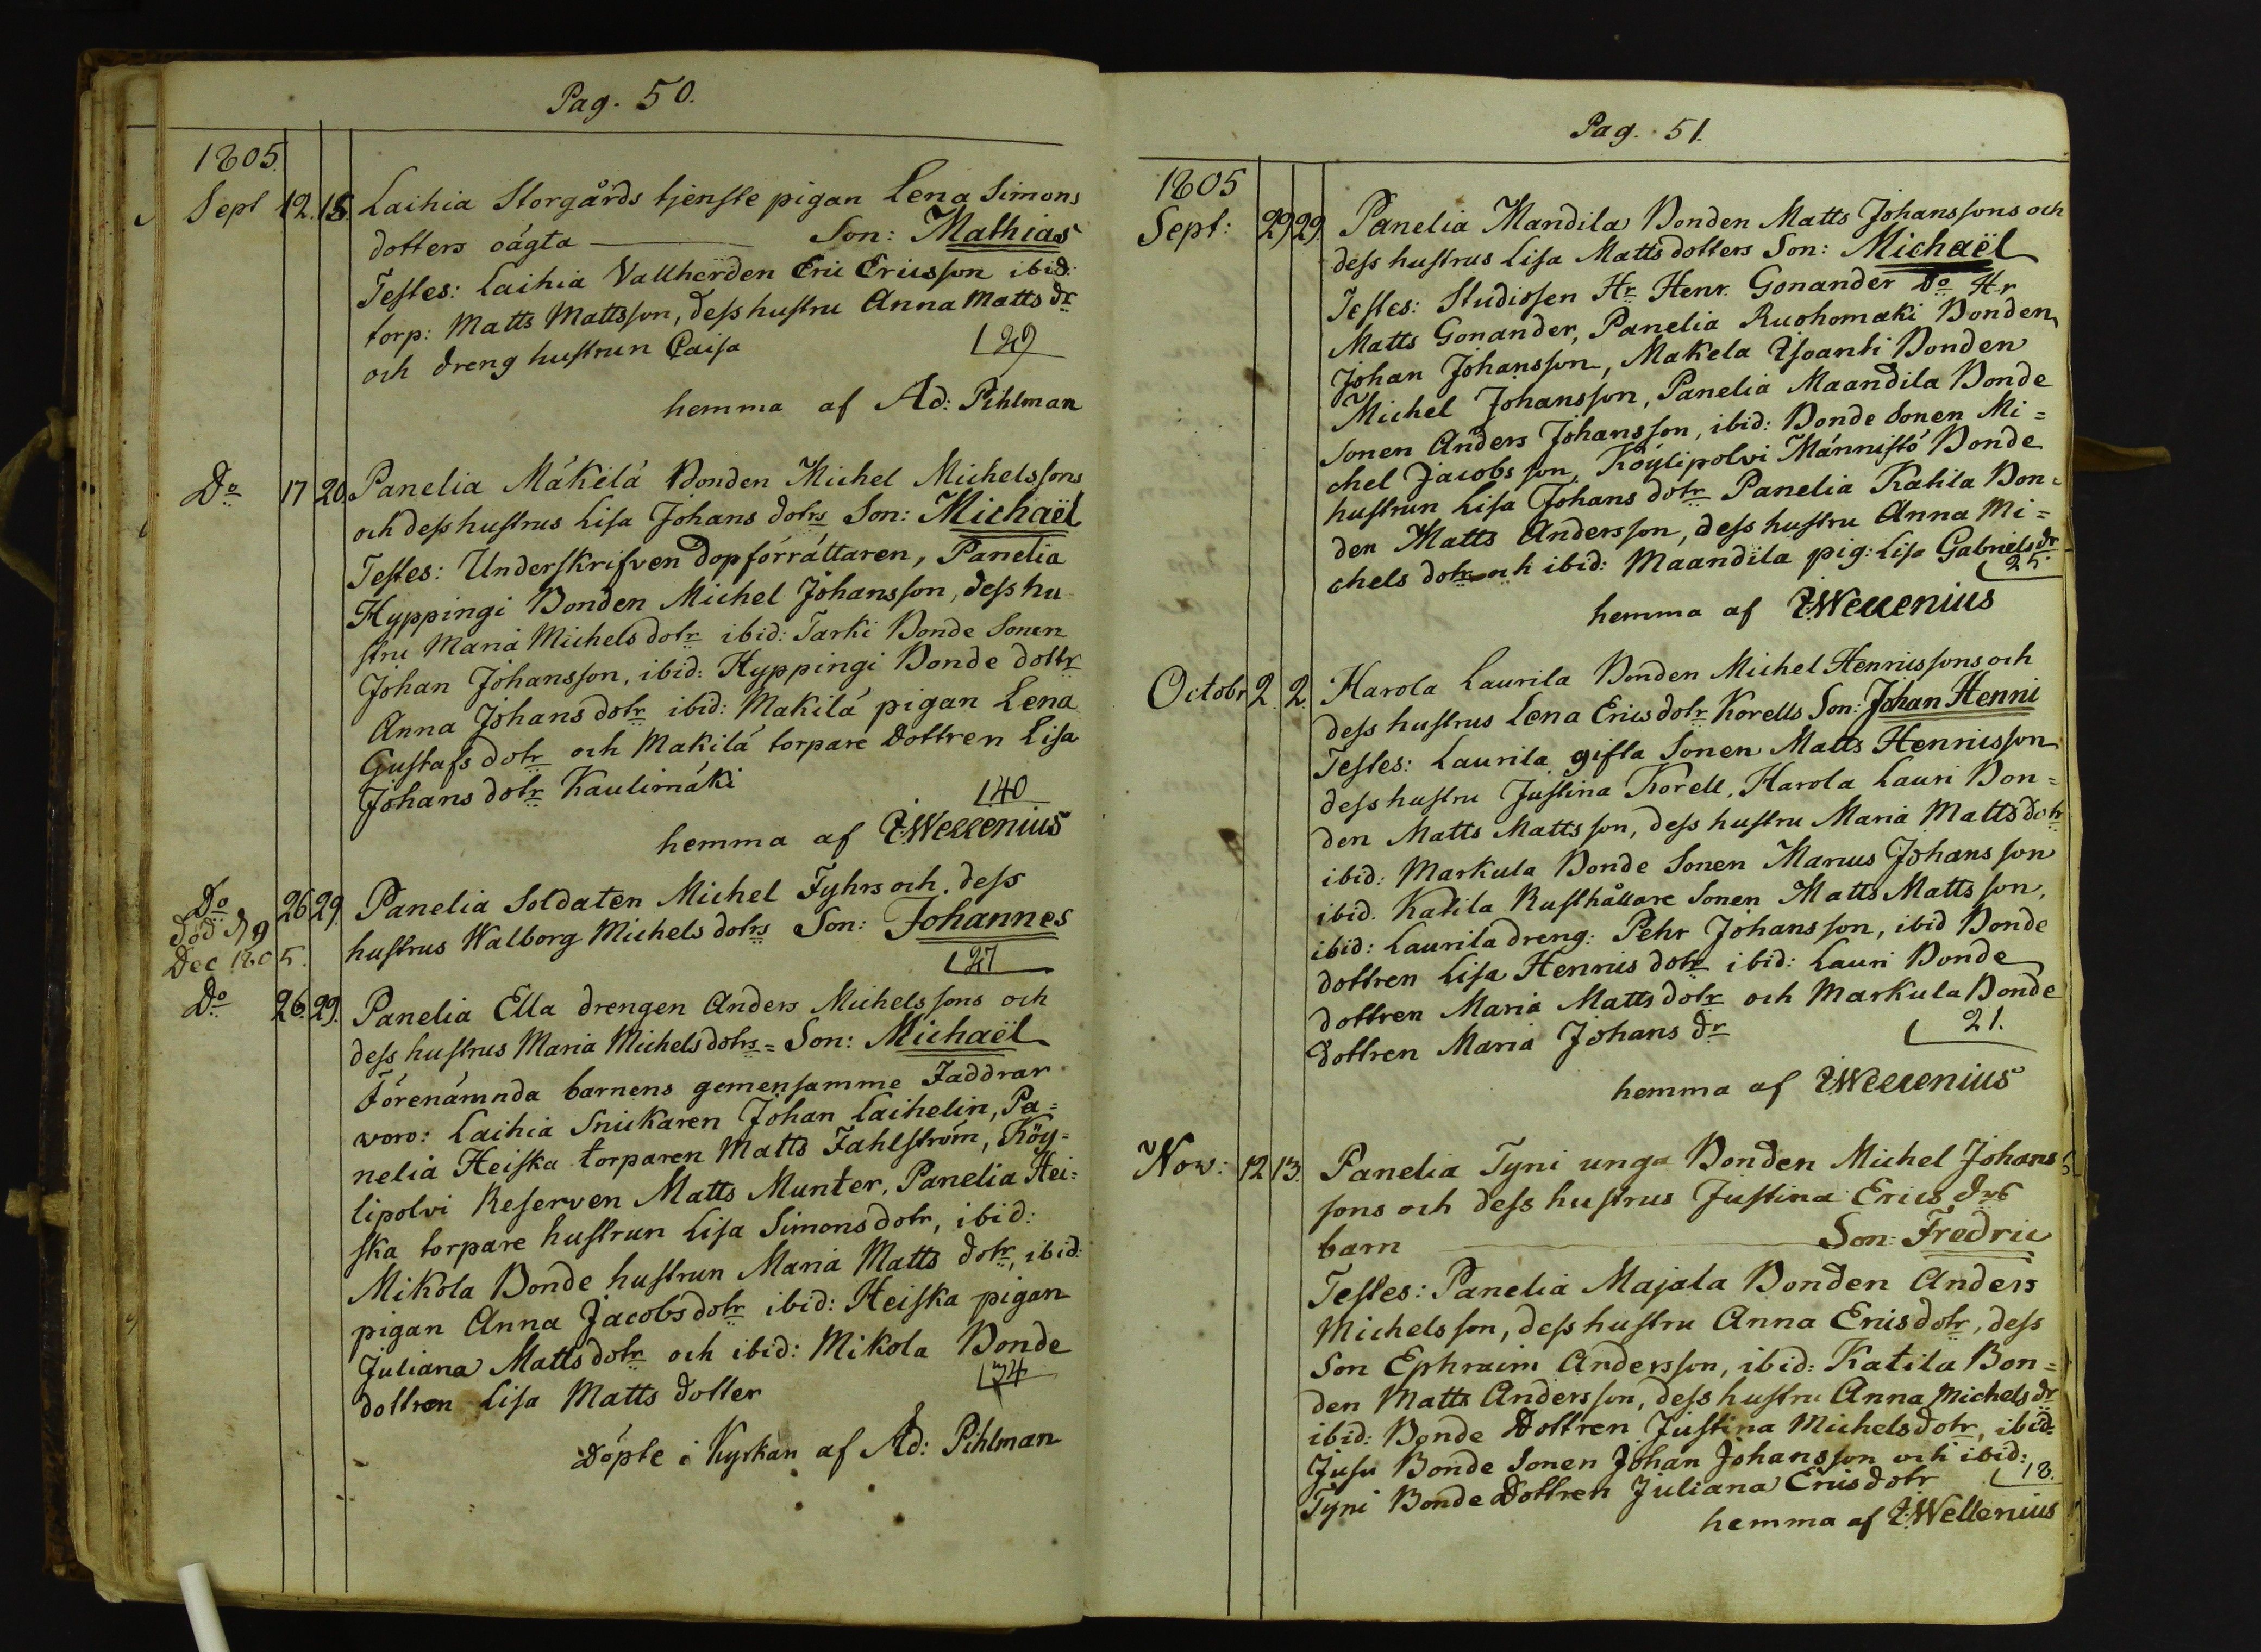 Pag. 50.
1805.
Sept 12. 15. Laihia Storgårds tjenste pigan Lena Simons
dotters oägta — Son: Mathias
Testes: Laihia Vallherden Eric Ericsson ibid:
torp: Matts Mattsson, dess hustru Anna Matts dr
och dreng hustrun Caisa
29
hemma af Ad: Pihlman
Do 17 20 Panelia Mäkilä Bonden Michel Michelssons
och dess hustrus Lisa Johans dotrs Son: Michaël
Testes: Underskrifven Dopförrättaren, Panelia
Hyppingi Bonden Michel Johansson, dess hu-
stru Maria Michelsdotr ibid: Tarki Bonde Sonen
Johan Johansson, ibid: Hyppingi Bonde dottr
Anna Johansdotr ibid: Makilä pigan Lena
Gustafs dotr och Makilä torpare Dottren Lisa
Johans dotr Kaulimäki
40
hemma af Wellenius
Do 26 29. Panelia Soldaten Michel Fyhrs och dess
död d 9
Dec 1805.
hustrus Walborg Michelsdotrs Son: Johannes
27
Do 26. 29. Panelia Ella drengen Anders Michelssons och
dess hustrus Maria Michelsdotrs = Son: Michaël
Förenämnda barnens gemensamme Faddrar
woro: Laihia Snickaren Johan Laihelin, Pa=
nelia Heiska torparen Matts Fahlström, Köy=
lipolvi Reserven Matts Munter, Panelia Hei=
ska torpare hustrun Lisa Simonsdotr, ibid:
Mikola Bonde hustrun Maria Matts dotr, ibid:
pigan Anna Jacobsdotr ibid: Heiska pigan
Juliana Mattsdotr och ibid: Mikola Bonde
dottren Lisa Matts dotter
34
Döpte i Kyrkan af Ad: Pihlman
Pag. 51.
1805
Sept: 29 29. Panelia Mandila Bonden Matts Johanssons och
dess hustrus Lisa Mattsdotters Son: Michaël
Testes: Studiosen Hr Henr. Gonander Do Hr
Matts Gonander, Panelia Ruohomaki Bonden
Johan Johansson, Makela Isoanti Bonden
Michel Johansson, Panelia Maandila Bonde
Sonen Anders Johansson, ibid: Bonde Sonen Mi=
chel Jacobsson, Köylipolvi Männistö Bonde
hustrun Lisa Johans dotr Panelia Katila Bon=
den Matts Andersson, dess hustru Anna Mi=
chels dotr och ibid: Maandila pig: Lisa Gabriels dr
25.
hemma af Wellenius
Octobr 2. 2. Harola Laurila Bonden Michel Henricssons och
dess hustrus Lena Ericsdotr Korells Son: Johan Henric
Testes: Laurila gifta Sonen Matts Henricsson
dess hustru Justina Korell, Harola Lauri Bon=
den Matts Mattsson, dess hustru Maria Mattsdotr
ibid: Markula Bonde Sonen Marcus Johansson
ibid. Katila Rusthållare Sonen Matts Mattsson,
ibid: Laurila dreng: Pehr Johansson, ibid Bonde
dottren Lisa Henrics dotr ibid: Lauri Bonde
dottren Maria Mattsdotr och Markula Bonde
Dottren Maria Johans dr
21.
hemma af Wellenius
Nov: 12 13. Panelia Tyni unga Bonden Michel Johans
sons och dess hustrus Justina Erics drs
barn — Son: Fredric
Testes: Panelia Majala Bonden Anders
Michelsson, dess hustru Anna Ericsdotr, dess
Son Ephraim Andersson, ibid: Katila Bon=
den Matts Andersson, dess hustru Anna Michels dr
ibid: Bonde Dottren Justina Michelsdotr, ibid:
Jusu Bonde Sonen Johan Johansson och ibid:
Tyni Bonde Dottren Juliana Ericsdotr
18.
hemma af Wellenius